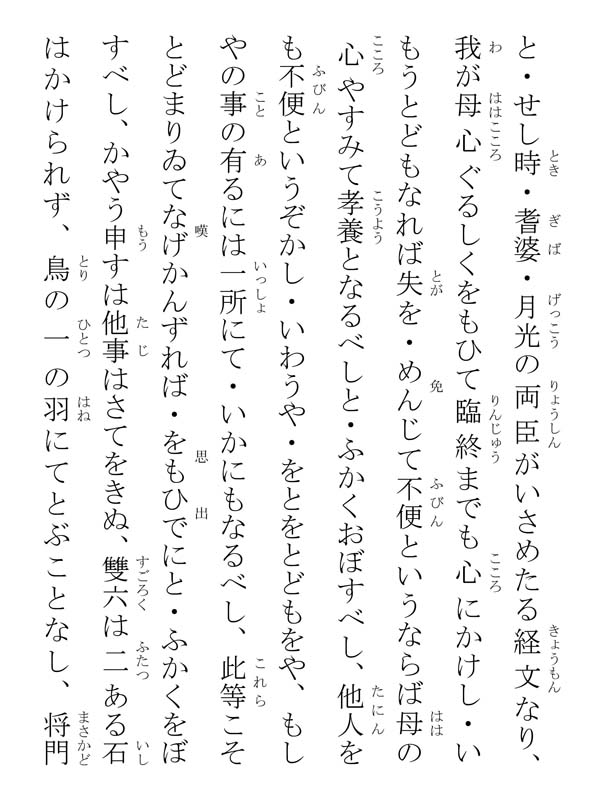 と・せし時・耆婆・月光の両臣がいさめたる経文なり、
我が母心ぐるしくをもひて臨終までも心にかけし・い
もうとどもなれば失を・めんじて不便というならば母の
心やすみて孝養となるべしと・ふかくおぼすべし、他人を
も不便というぞかし・いわうや・をとをとどもをや、もし
やの事の有るには一所にて・いかにもなるべし、此等こそ
とどまりゐてなげかんずれば・をもひでにと・ふかくをぼ
すべし、かやう申すは他事はさてをきぬ、雙六は二ある石
はかけられず、鳥の一の羽にてとぶことなし、将門